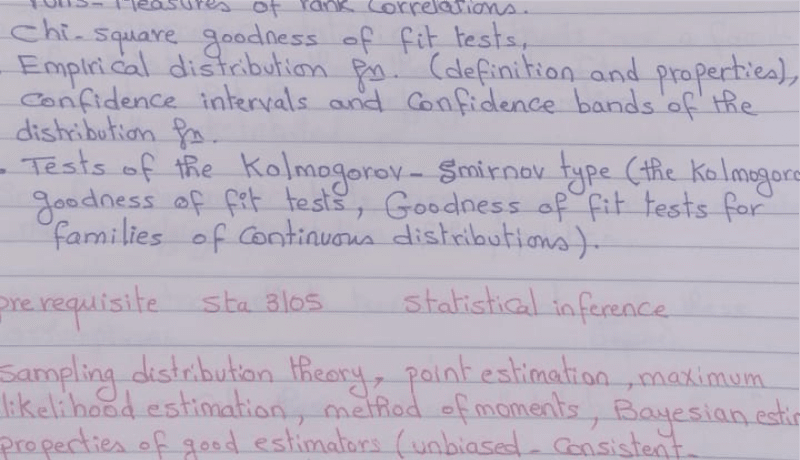 Measures of rank correlations.
Chi-square goodness of fit tests,
Empirical distribution fn. (definition and properties),
confidence intervals and confidence bands of the
distribution fn.
. Tests of the Kolmogorov-Smirnov type (the Kolmogoro
goodness of fit tests, Goodness of fit tests for
families of continuous distributions).
prerequisite sta 3105 statistical inference
Sampling distribution theory, point estimation, maximum
likelihood estimation, method of moments, Bayesian estim
properties of good estimators (unbiased - Consistent-